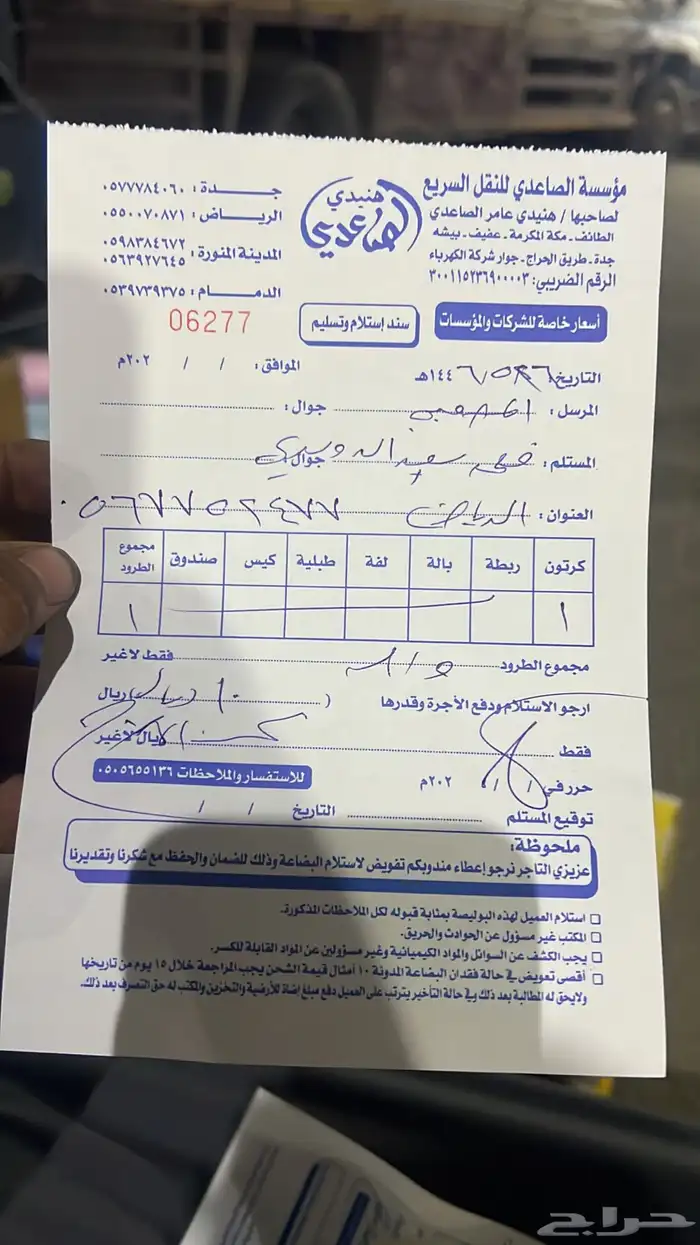 مؤسسة الصاعدي للنقل السريع
لصاحبها / هنيدي عامر الصاعدي
الطائف - مكة المكرمة - عفيف - بيشه
جدة - طريق الحراج - جوار شركة الكهرباء
الرقم الضريبي: ٣٠٠١١٥٢٣٦٩٠٠٠٠٣
هنيدي
الصاعدي
جدة : ٠٥٧٧٧٨٤٠٦٠
الرياض : ٠٥٥٠٠٧٠٨٧١
المدينة المنورة : ٠٥٩٨٣٨٤٦٧٢
٠٥٦٣٩٢٧٦٤٥
الدمام : ٠٥٣٩٧٣٩٣٧٥
أسعار خاصة للشركات والمؤسسات
سند إستلام وتسليم
06277
التاريخ ١٤٤هـ الموافق : / / ٢٠٢م
المرسل : جوال :
المستلم : سعيد الدوسري جوال :
العنوان : الرياض ٠٥٦٧٧٥٢٤٧٧
كرتون ربطة بالة لفة طبلية كيس صندوق مجموع الطرود
١ ١
مجموع الطرود واحد فقط لاغير
ارجو الاستلام ودفع الأجرة وقدرها ( ١٠ ريال ) ريال
فقط ريال لاغير
حرر في / / ٢٠٢م
للاستفسار والملاحظات ٠٥٠٥٦٥٥١٣٦
توقيع المستلم التاريخ / /
ملحوظة:
عزيزي التاجر نرجو إعطاء مندوبكم تفويض لاستلام البضاعة وذلك للضمان والحفظ مع شكرنا وتقديرنا
استلام العميل لهذه البوليصة بمثابة قبوله لكل الملاحظات المذكورة.
المكتب غير مسؤول عن الحوادث والحريق.
يجب الكشف عن السوائل والمواد الكيميائية وغير مسؤولين عن المواد القابلة للكسر.
أقصى تعويض في حالة فقدان البضاعة المدونة ١٠ أمثال قيمة الشحن يجب المراجعة خلال ١٥ يوم من تاريخها
ولايحق له المطالبة بعد ذلك وفي حالة التأخير يترتب على العميل دفع مبلغ إضافة للأرضية والتخزين والمكتب له حق التصرف بعد ذلك.
حراج